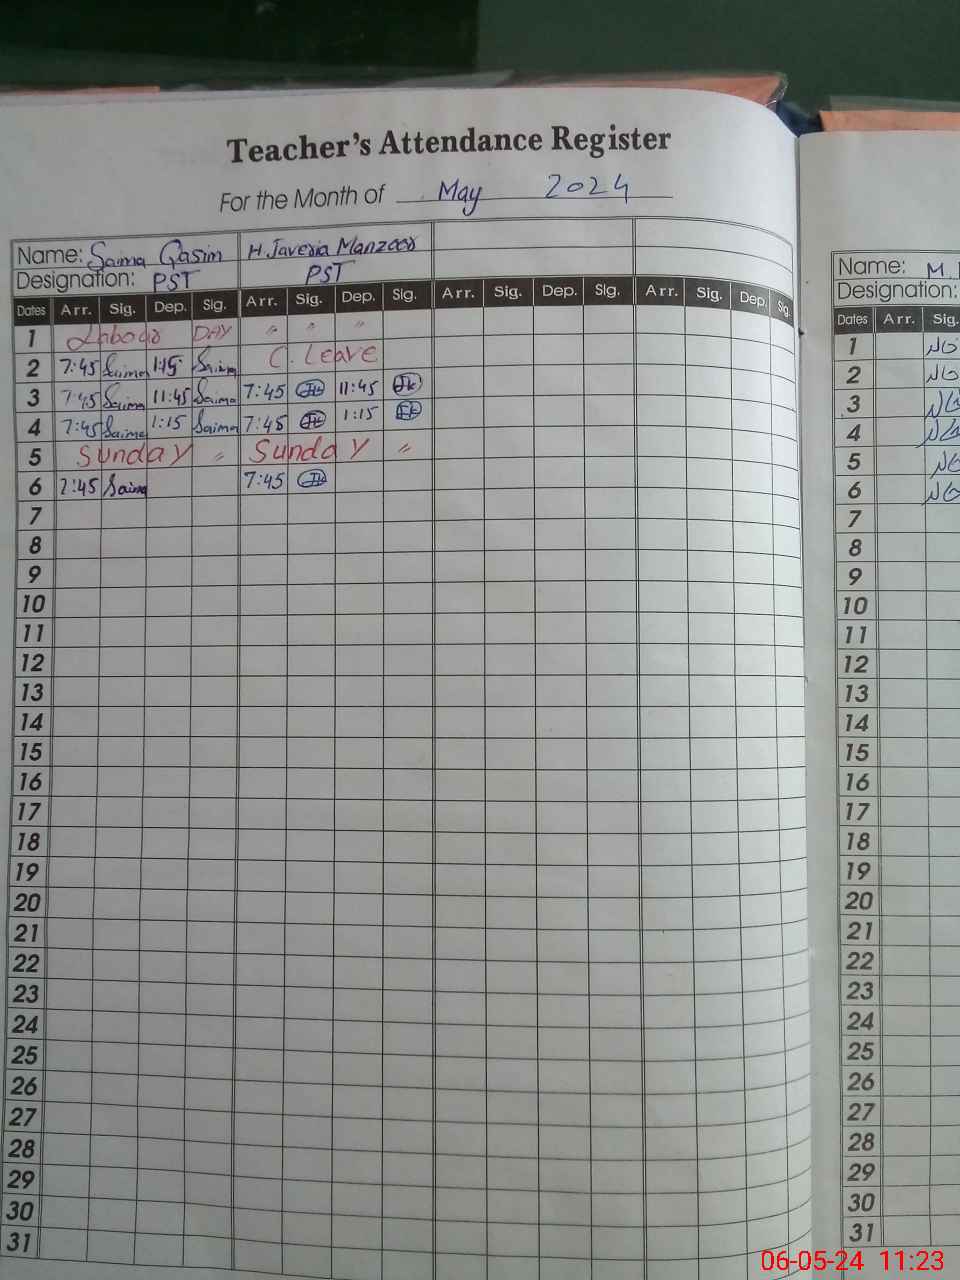 Teacher's Attendance Register
For the Month of May 2024
Name: Saima Qasim H. Javeria Manzoor
Designation: PST PST
Dates Arr. Sig. Dep. Sig. Arr. Sig. Dep. Sig. Arr. Sig. Dep. Sig. Arr. Sig. Dep. Sig.
1 Labour DAY " " "
2 7:45 Saima 1:15 Saima C. Leave
3 7:45 Saima 11:45 Saima 7:45 11:45
4 7:45 Saima 1:15 Saima 7:45 1:15
5 Sunday " Sunday "
6 7:45 Saima 7:45
7
8
9
10
11
12
13
14
15
16
17
18
19
20
21
22
23
24
25
26
27
28
29
30
31
Name: M.
Designation:
Dates Arr. Sig.
1
2
3
4
5
6
7
8
9
10
11
12
13
14
15
16
17
18
19
20
21
22
23
24
25
26
27
28
29
30
31
06-05-24 11:23